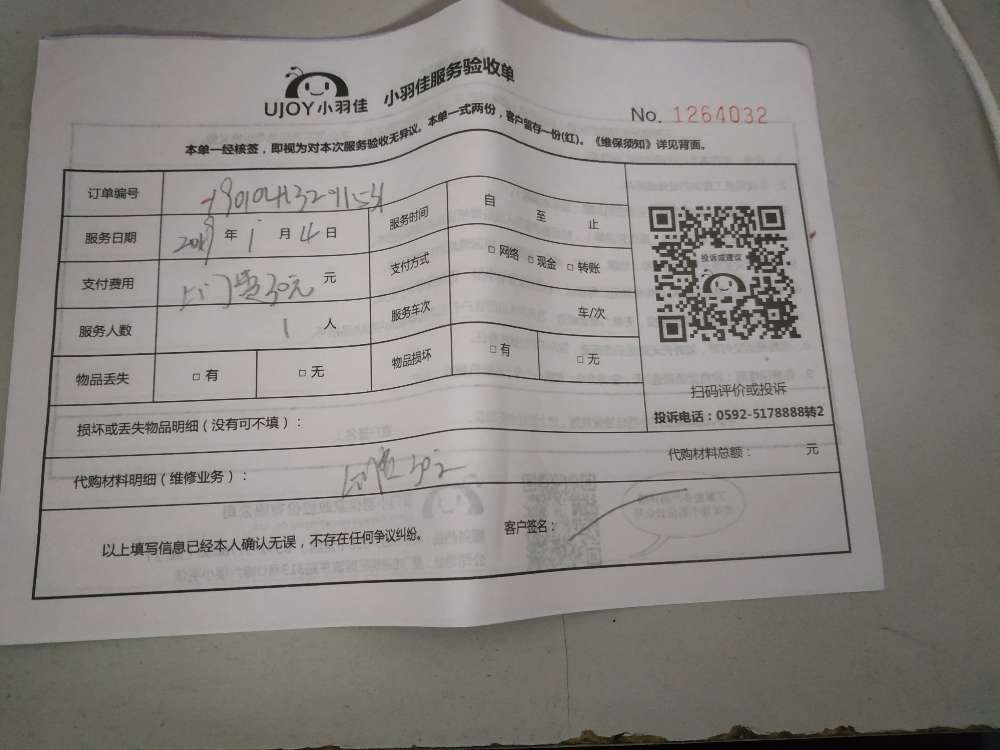 UJOY小羽佳 小羽佳服务验收单
No. 1264032
本单一经核签，即视为对本次服务验收无异议。本单一式两份，客户留存一份(红)。《维保须知》详见背面。
订单编号
服务时间 自 至 止
服务日期 年 1 月 4 日
支付费用 上门费30元 元
支付方式 □ 网络 □ 现金 □ 转账
服务人数 1 人
服务车次 车/次
物品丢失 □ 有 □ 无
物品损坏 □ 有 □ 无
投诉或建议
扫码评价或投诉
投诉电话：0592-5178888转2
损坏或丢失物品明细（没有可不填）：
代购材料明细（维修业务）：
代购材料总额： 元
以上填写信息已经本人确认无误，不存在任何争议纠纷。
客户签名：